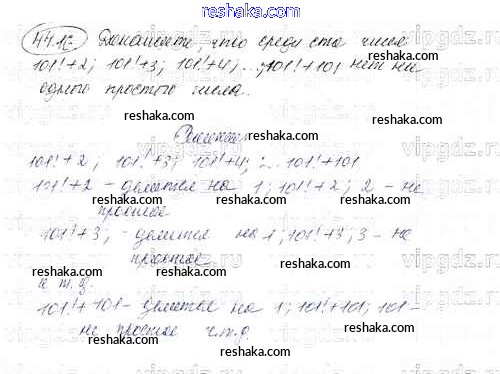 www.reshaka.com
44.12 Докажите, что среди ста чисел
101!+2; 101!+3; 101!+4; ...; 101!+101 нет ни
reshaka.com reshaka.com
одного простого числа.
reshaka.com
Решение
reshaka.com
101!+2; 101!+3; 101!+4; ... 101!+101
reshaka.com reshaka.com
101!+2 - делится на 1; 101!+2; 2 - не
простое
reshaka.com
101!+3, - делится на 1; 101!+3; 3 - не
reshaka.com reshaka.com
простое
и т.д.
reshaka.com
101!+101 - делится на 1; 101!+101; 101 -
reshaka.com reshaka.com
не простое ч.т.д.
reshaka.com
reshaka.com reshaka.com